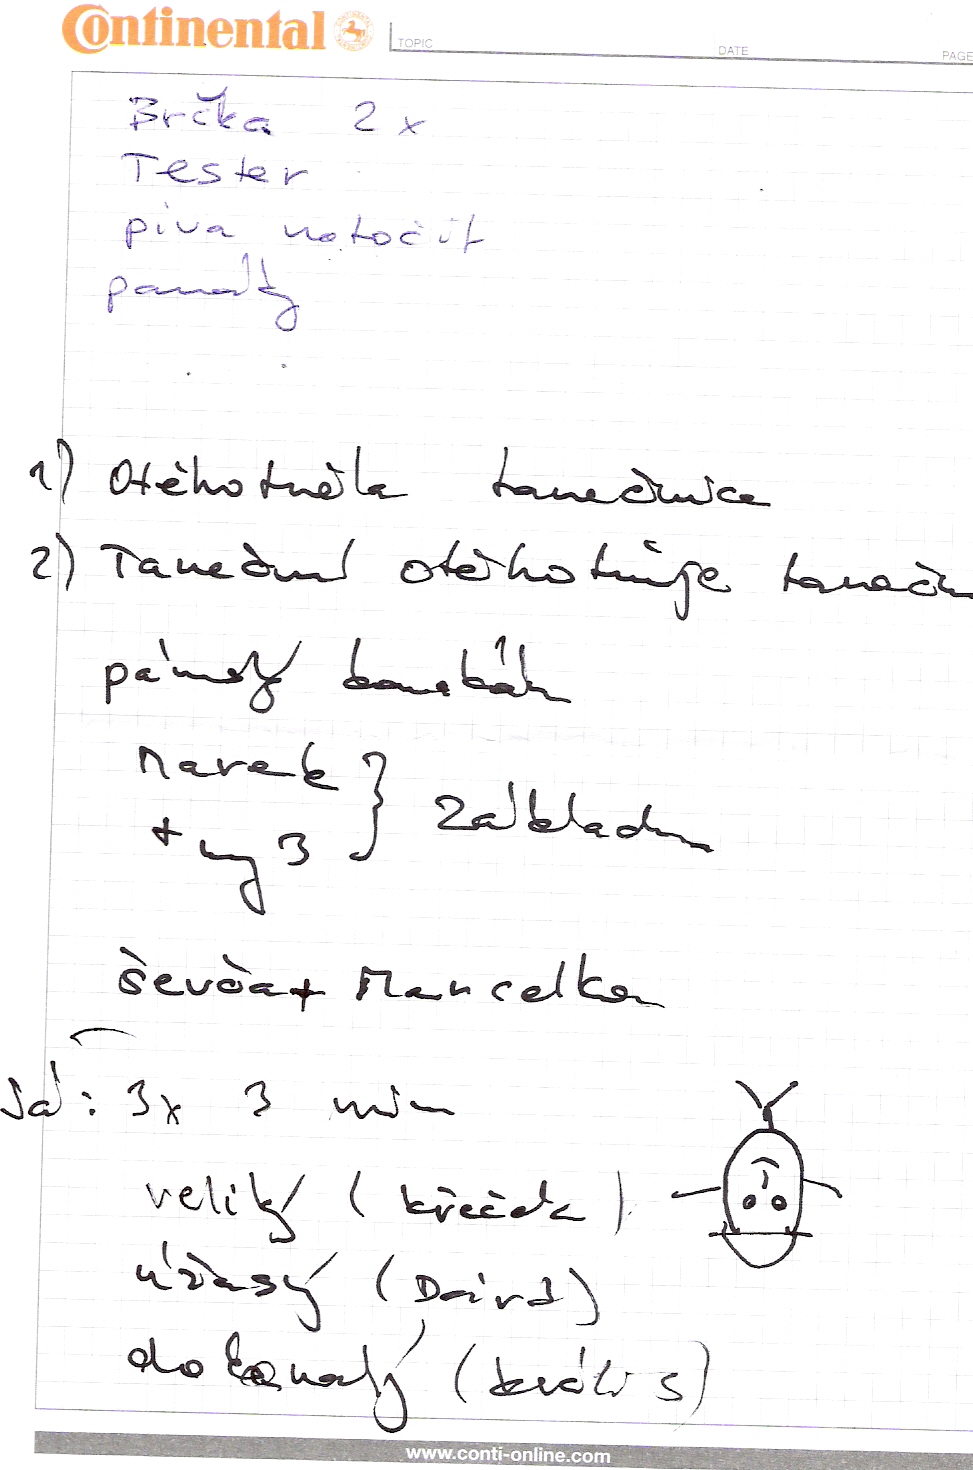 Continental
TOPIC DATE PAGE
Brčka 2x
Tester
piva natočit
panáky
1) Otěhotněla tanečnice
2) Taneční otěhotňuje tanečn
pánský
Marek
+ my 3 } Základm
Ševča + Mancelka
Já: 3x 3 min
veliký (křeček)
úžasý (David)
dokonalý (králi s)
www.conti-online.com